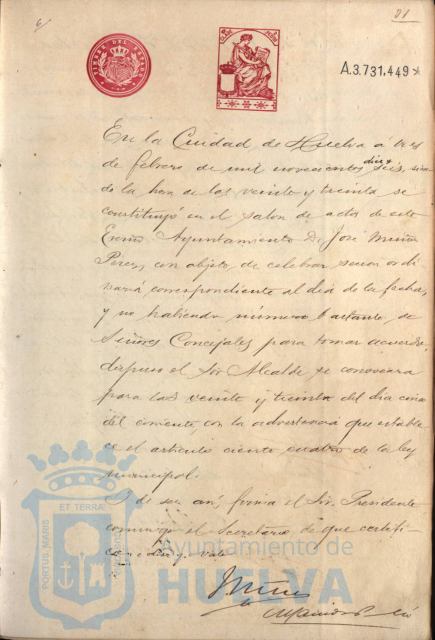 21
A.3.731.449
En la Ciudad de Huelva á tres
de febrero de mil novecientos diez y seis, siendo
la hora de las veinte y treinta se
constituyó en el salon de actos de este
Excmo Ayuntamiento D. José Muñoz
Perez, con objeto de celebrar sesion ordi
naria correspondiente al dia de la fecha,
y no habiendo número bastante de
Señores Concejales para tomar acuerdo,
dispuso el Sor Alcalde se convocara
para las veinte y treinta del dia cinco
del corriente, con la advertencia que estable
ce el artículo ciento cuatro de la ley
municipal.
Y de ser así, firma el Sr. Presidente
conmigo el Secretario de que certifi
co
PORTUS MARIS
ET TERRÆ
Ayuntamiento de
HUELVA